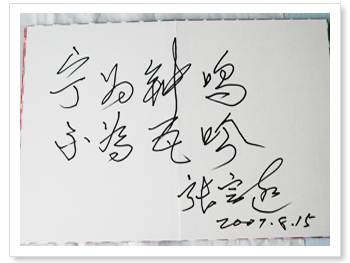 宁为钟鸣
不為瓦吟
张宝超
2007.8.15